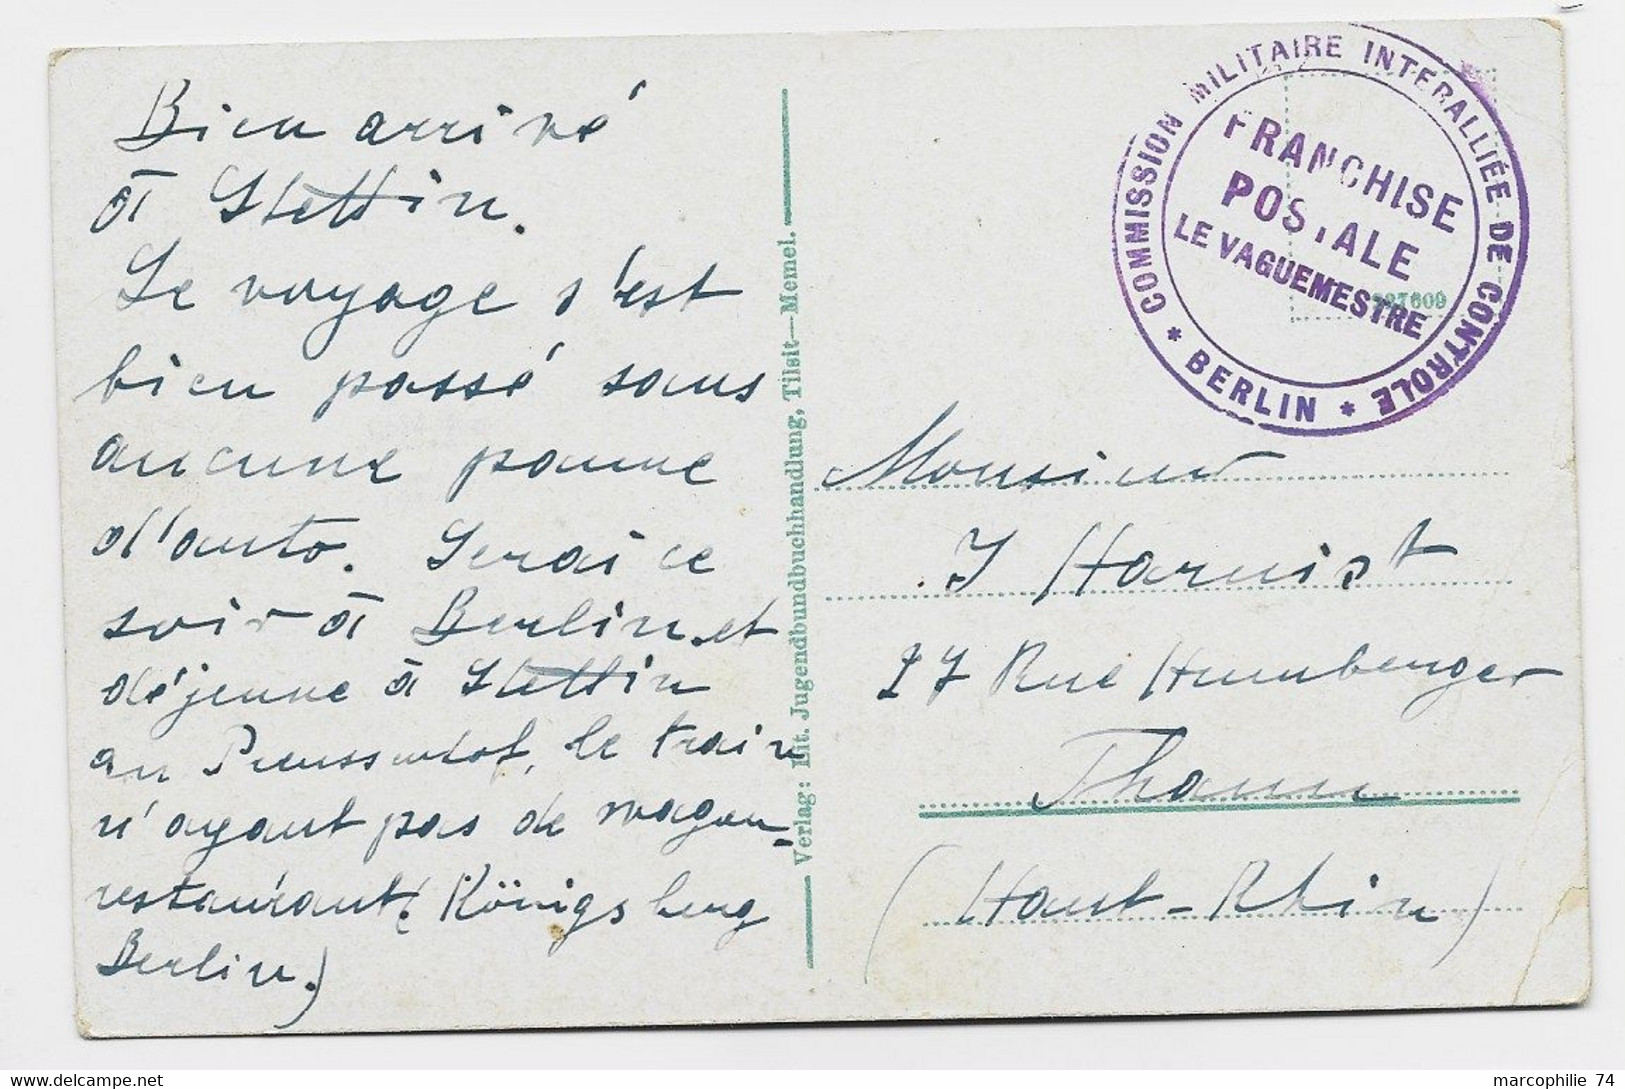 Bien arrivé
à Stettin.
Le voyage s'est
bien passé sans
aucune panne
d'auto. Serai ce
soir à Berlin et
déjeune à Stettin
au Preussenhof, le train
n'ayant pas de wagon-
restaurant (Königsberg
Berlin.)
Verlag: Lit. Jugendbundbuchhandlung, Tilsit—Memel.
COMMISSION MILITAIRE INTERALLIÉE DE CONTROLE
* BERLIN *
FRANCHISE
POSTALE
LE VAGUEMESTRE
Monsieur
J Harnist
27 Rue Humberger
Thann
(Haut-Rhin)
marcophilie 74